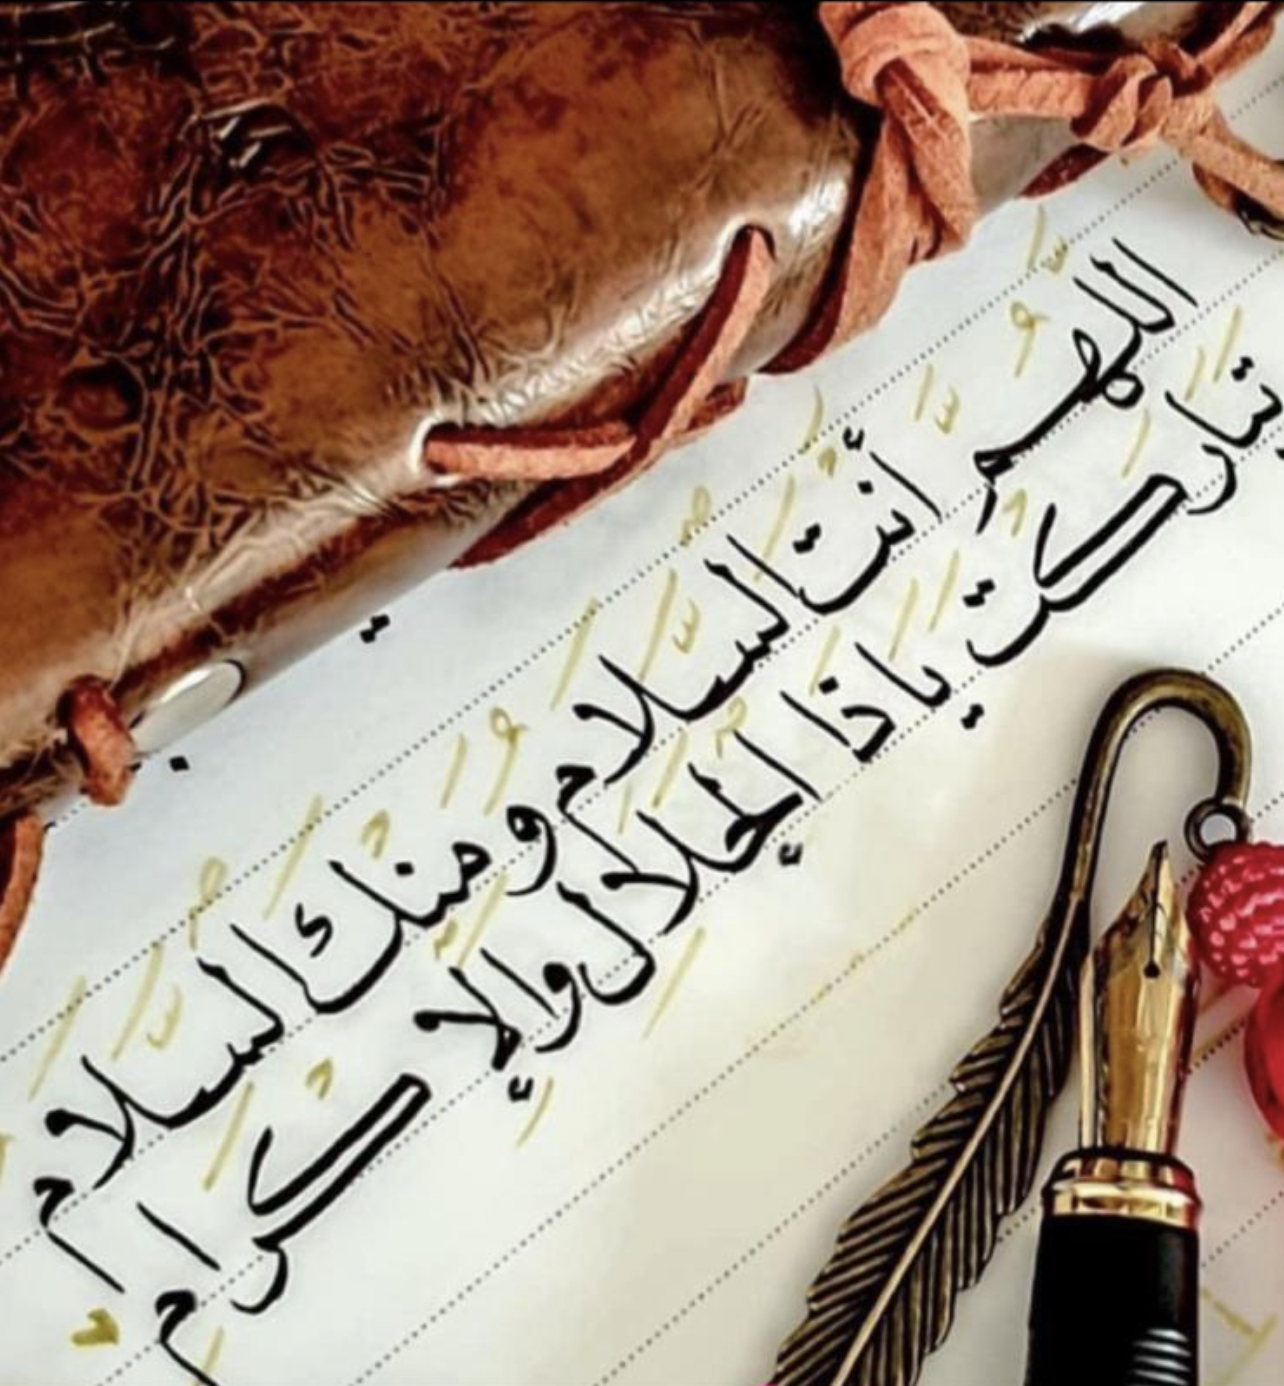 اللَّهُمَّ أَنْتَ السَّلَامُ وَمِنْكَ السَّلَامُ
تَبَارَكْتَ يَاذَا الْجَلَالِ وَالْإِكْرَامِ